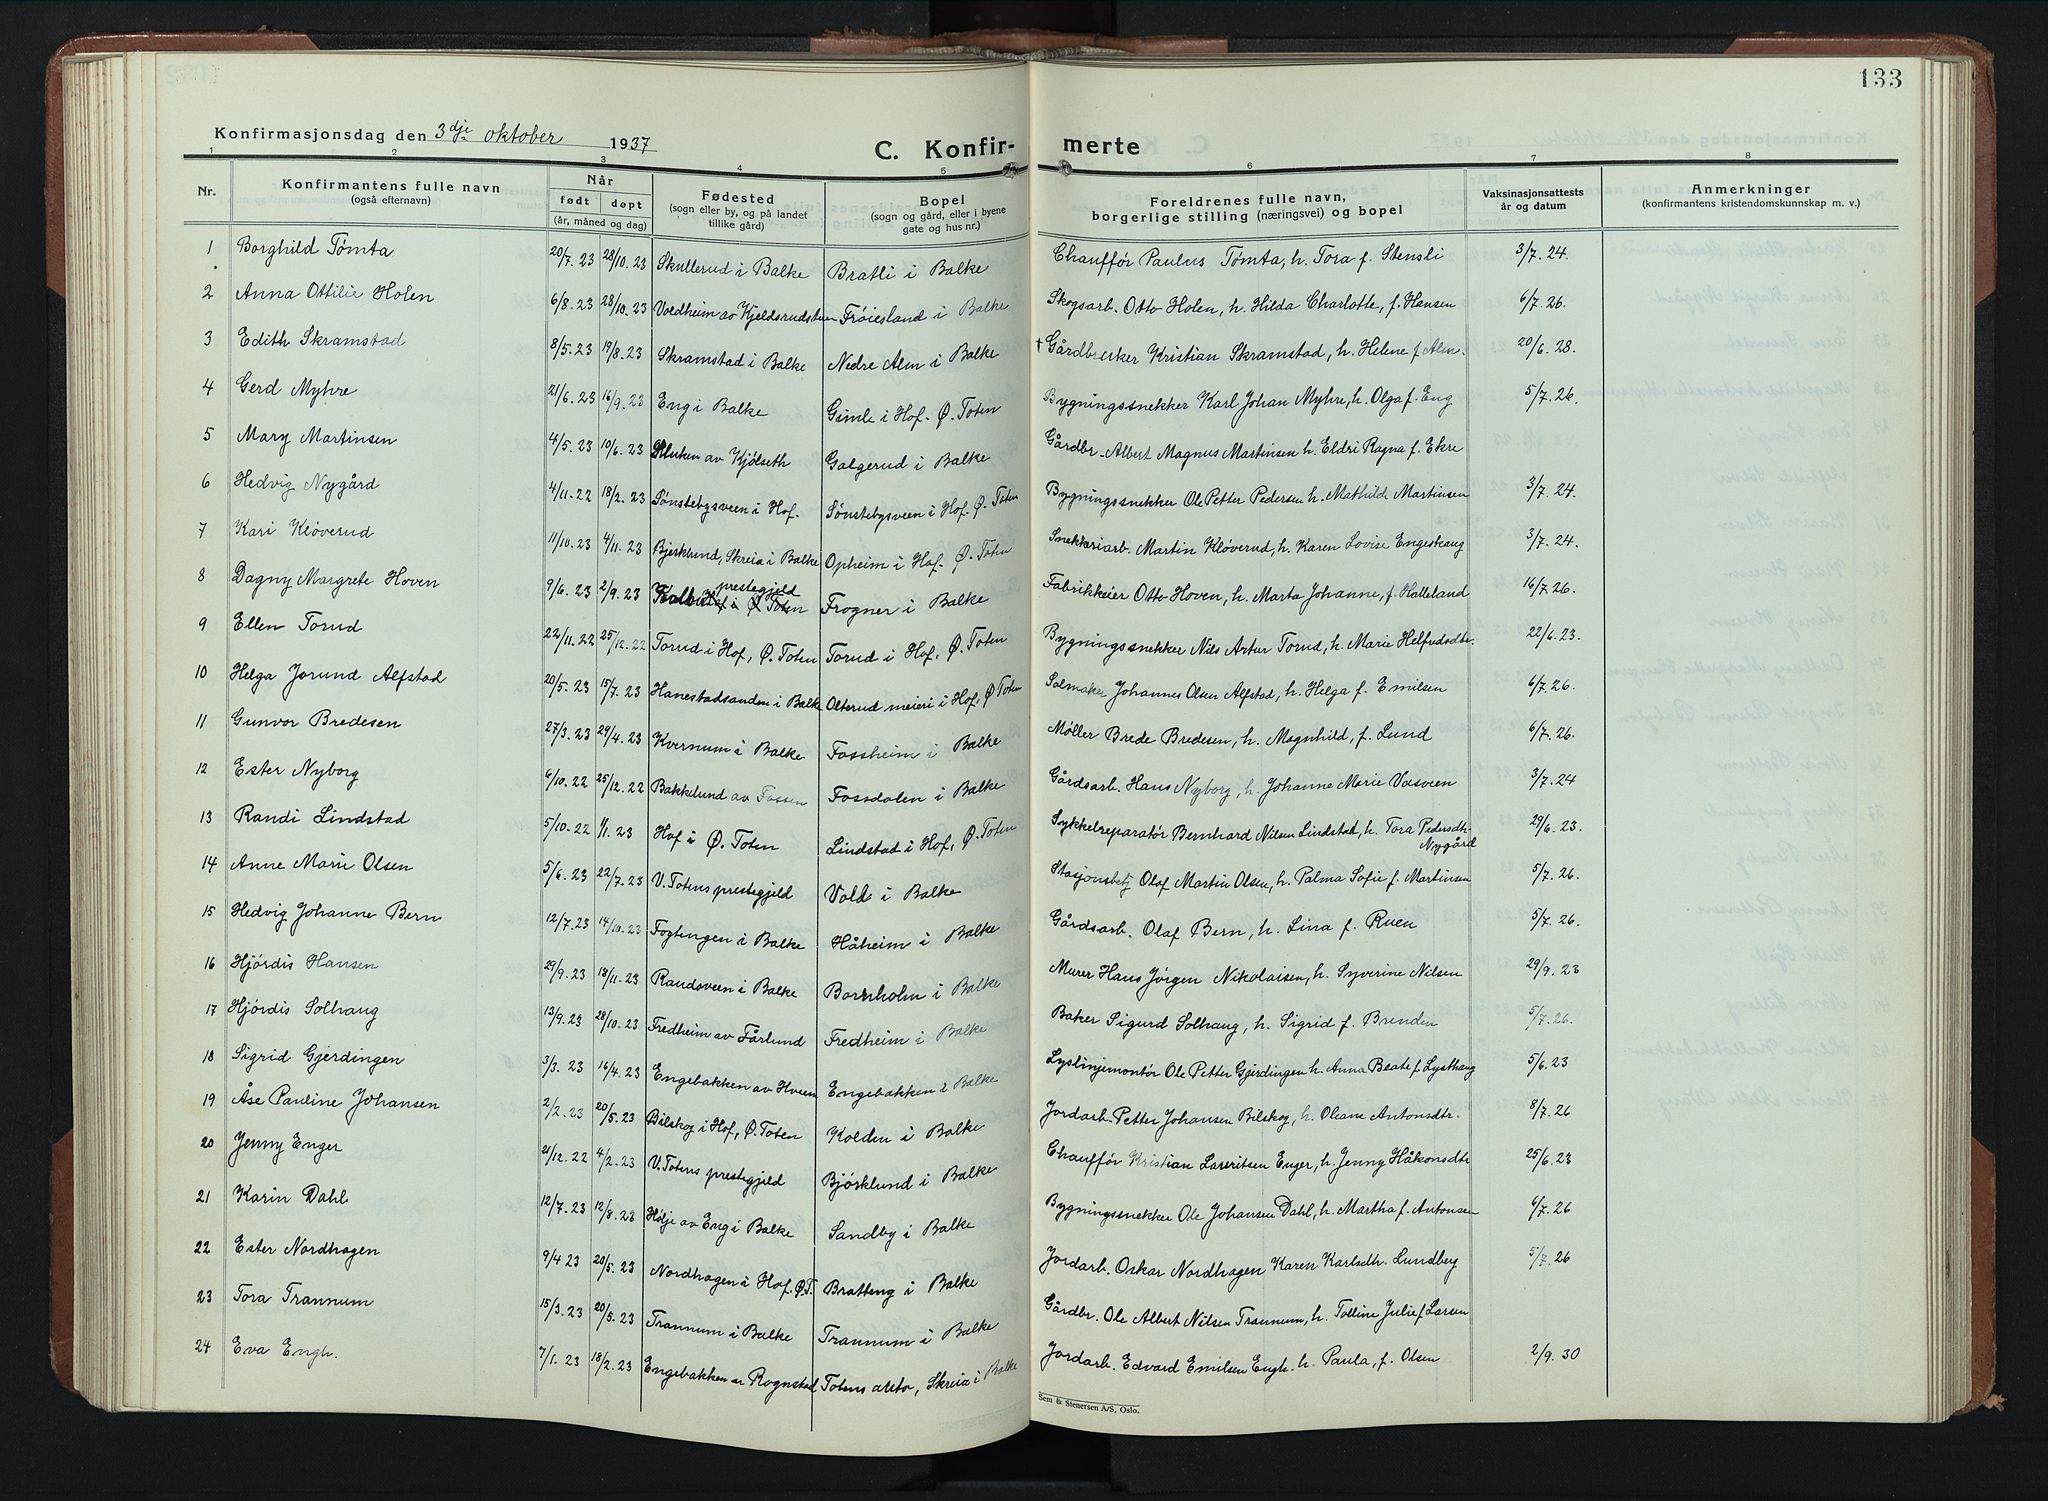 133
Konfirmasjonsdag den 3dje oktober 1937
C. Konfir-merte
1 2 3 4 5 6 7 8
Nr. Konfirmantens fulle navn (også efternavn) Når født døpt (år, måned og dag) Fødested (sogn eller by, og på landet tillike gård) Bopel (sogn og gård, eller i byene gate og hus nr.) Foreldrenes fulle navn, borgerlige stilling (næringsvei) og bopel Vaksinasjonsattests år og datum Anmerkninger (konfirmantens kristendomskunnskap m. v.)
1 Borghild Tømta 20/7. 23 28/10. 23 Skullerud i Balke Bratli i Balke Chauffør Paulus Tømta, h. Tora f. Stensli 3/7. 24.
2 Anna Ottilie Holen 6/8. 23 28/10. 23 Voldheim av Kjeldsrudstuen Frøiesland i Balke Skogsarb. Otto Holen, h. Hilda Charlotte, f. Hansen 6/7. 26.
3 Edith Skramstad 8/5. 23 19/8. 23 Skramstad i Balke Nedre Alm i Balke † Gårdbruker Kristian Skramstad, h. Helene f. Alm. 20/6. 28.
4 Gerd Myhre 21/6. 23 16/9. 23 Eng i Balke Gimle i Hof. Ø. Toten Bygningssnekker Karl Johan Myhre, h. Olga f. Eng 5/7. 26.
5 Mary Martinsen 4/5. 23 10/6. 23 av Kjølseth Galgerud i Balke Gårdbr. Albert Magnus Martinsen h. Eldri Ragna f. Ekre
6 Hedvig Nygård 4/11. 22 18/2. 23 Sønstebysveen i Hof. Sønstebysveen i Hof. Ø. Toten Bygningssnekker Ole Petter Pedersen h. Mathilde Martinsen 3/7. 24.
7 Kari Kløverud 11/10. 23 4/11. 23 Bjerklund, Skreia i Balke Opheim i Hof. Ø. Toten Snekkeriarb. Martin Kløverud, h. Karen Lovise Engeskaug 3/7. 24.
8 Dagny Margrete Hoven 9/6. 23 2/9. 23 Kolbu prestegjeld Hof i Ø. Toten Frogner i Balke Fabrikkeier Otto Hoven, h. Marta Johanne, f. Halleland 16/7. 26.
9 Ellen Torud 22/11. 22 25/12. 22 Torud i Hof, Ø. Toten Torud i Hof, Ø. Toten Bygningssnekker Nils Artur Torud, h. Marie Helfredsdtr. 22/6. 23.
10 Helga Jorund Alfstad 20/5. 23 15/7. 23 Hanestadsanden i Balke Olterud meieri i Hof, Ø Toten Salmaker Johannes Olsen Alfstad, h. Helga f. Emilsen 6/7. 26.
11 Gunvor Bredesen 27/3. 23 29/4. 23 Kvernum i Balke Fossheim i Balke Møller Brede Bredesen, h. Magnhild, f. Lund 6/7. 26.
12 Ester Nyborg 6/10. 22 25/12. 22 Bakkelund av Fossen Fossdalen i Balke Gårdsarb. Hans Nyborg, h. Johanne Marie Vasveen 3/7. 24
13 Randi Lindstad 5/10. 22 1/1. 23 Hof i Ø. Toten Lindstad i Hof, Ø. Toten Sykkelreparatør Bernhard Nilsen Lindstad, h. Tora Pedersdtr. Nygård 29/6. 23.
14 Anne Marie Olsen 5/6. 23 22/7. 23 V. Totens prestegjeld Vold i Balke Stasjonsbetj Olaf Martin Olsen, h. Palma Sofie f. Martinsen 5/7. 26.
15 Hedvig Johanne Bern 12/7. 23 14/10. 23 Fogtengen i Balke Håheim i Balke Gårdsarb. Olaf Bern, h. Lina f. Ruen 5/7. 26.
16 Hjørdis Hansen 29/9. 23 18/11. 23 Randsveen i Balke Bornholm i Balke Murer Hans Jørgen Nikolaisen, h. Syverine Nilsen 29/9. 23
17 Hjørdis Solhaug 13/9. 23 28/10. 23 Fredheim av Fårlund Fredheim i Balke Baker Sigurd Solhaug, h. Sigrid f. Brenden 5/7. 26.
18 Sigrid Gjerdingen 3/3. 23 16/4. 23 Engebakken av Hveem Engebakken i Balke Lyslinjemontør Ole Petter Gjerdingen h. Anna Beate f. Lysthaug 5/6. 23
19 Åse Pauline Johansen 2/2. 23 20/5. 23 Bilskog i Hof, Ø. Toten Kolden i Balke Jordarb. Petter Johansen Bilskog, h. Oleane Antonsdtr. 8/7. 26
20 Jenny Enger 21/12. 22 4/2. 23 V. Totens prestegjeld Bjørklund i Balke Chauffør Kristian Lauritsen Enger, h. Jenny Håkonsdtr 25/6. 23
21 Karin Dahl 12/7. 23 12/8. 23 Hilje av Eng i Balke Sandby i Balke Bygningssnekker Ole Johansen Dahl, h. Martha f. Antonsen 6/7. 26
22 Ester Nordhagen 9/4 23 20/5. 23 Nordhagen i Hof. Ø.T. Bratteng i Balke Jordarb. Oskar Nordhagen Karen Karlsdtr. Lundberg 5/7. 26
23 Tora Trannum 15/3. 23 20/5. 23 Trannum i Balke Trannum i Balke Gårdbr. Ole Albert Nilsen Trannum, h. Tolline Julie f. Larsen
24 Eva Engh. 7/1. 23 18/2. 23 Engebakken av Rognstad Totens Skreia i Balke Jordarb. Edvard Emilsen Engh. h. Paula, f. Olsen 2/9. 30
Sem & Stenersen A/S, Oslo.